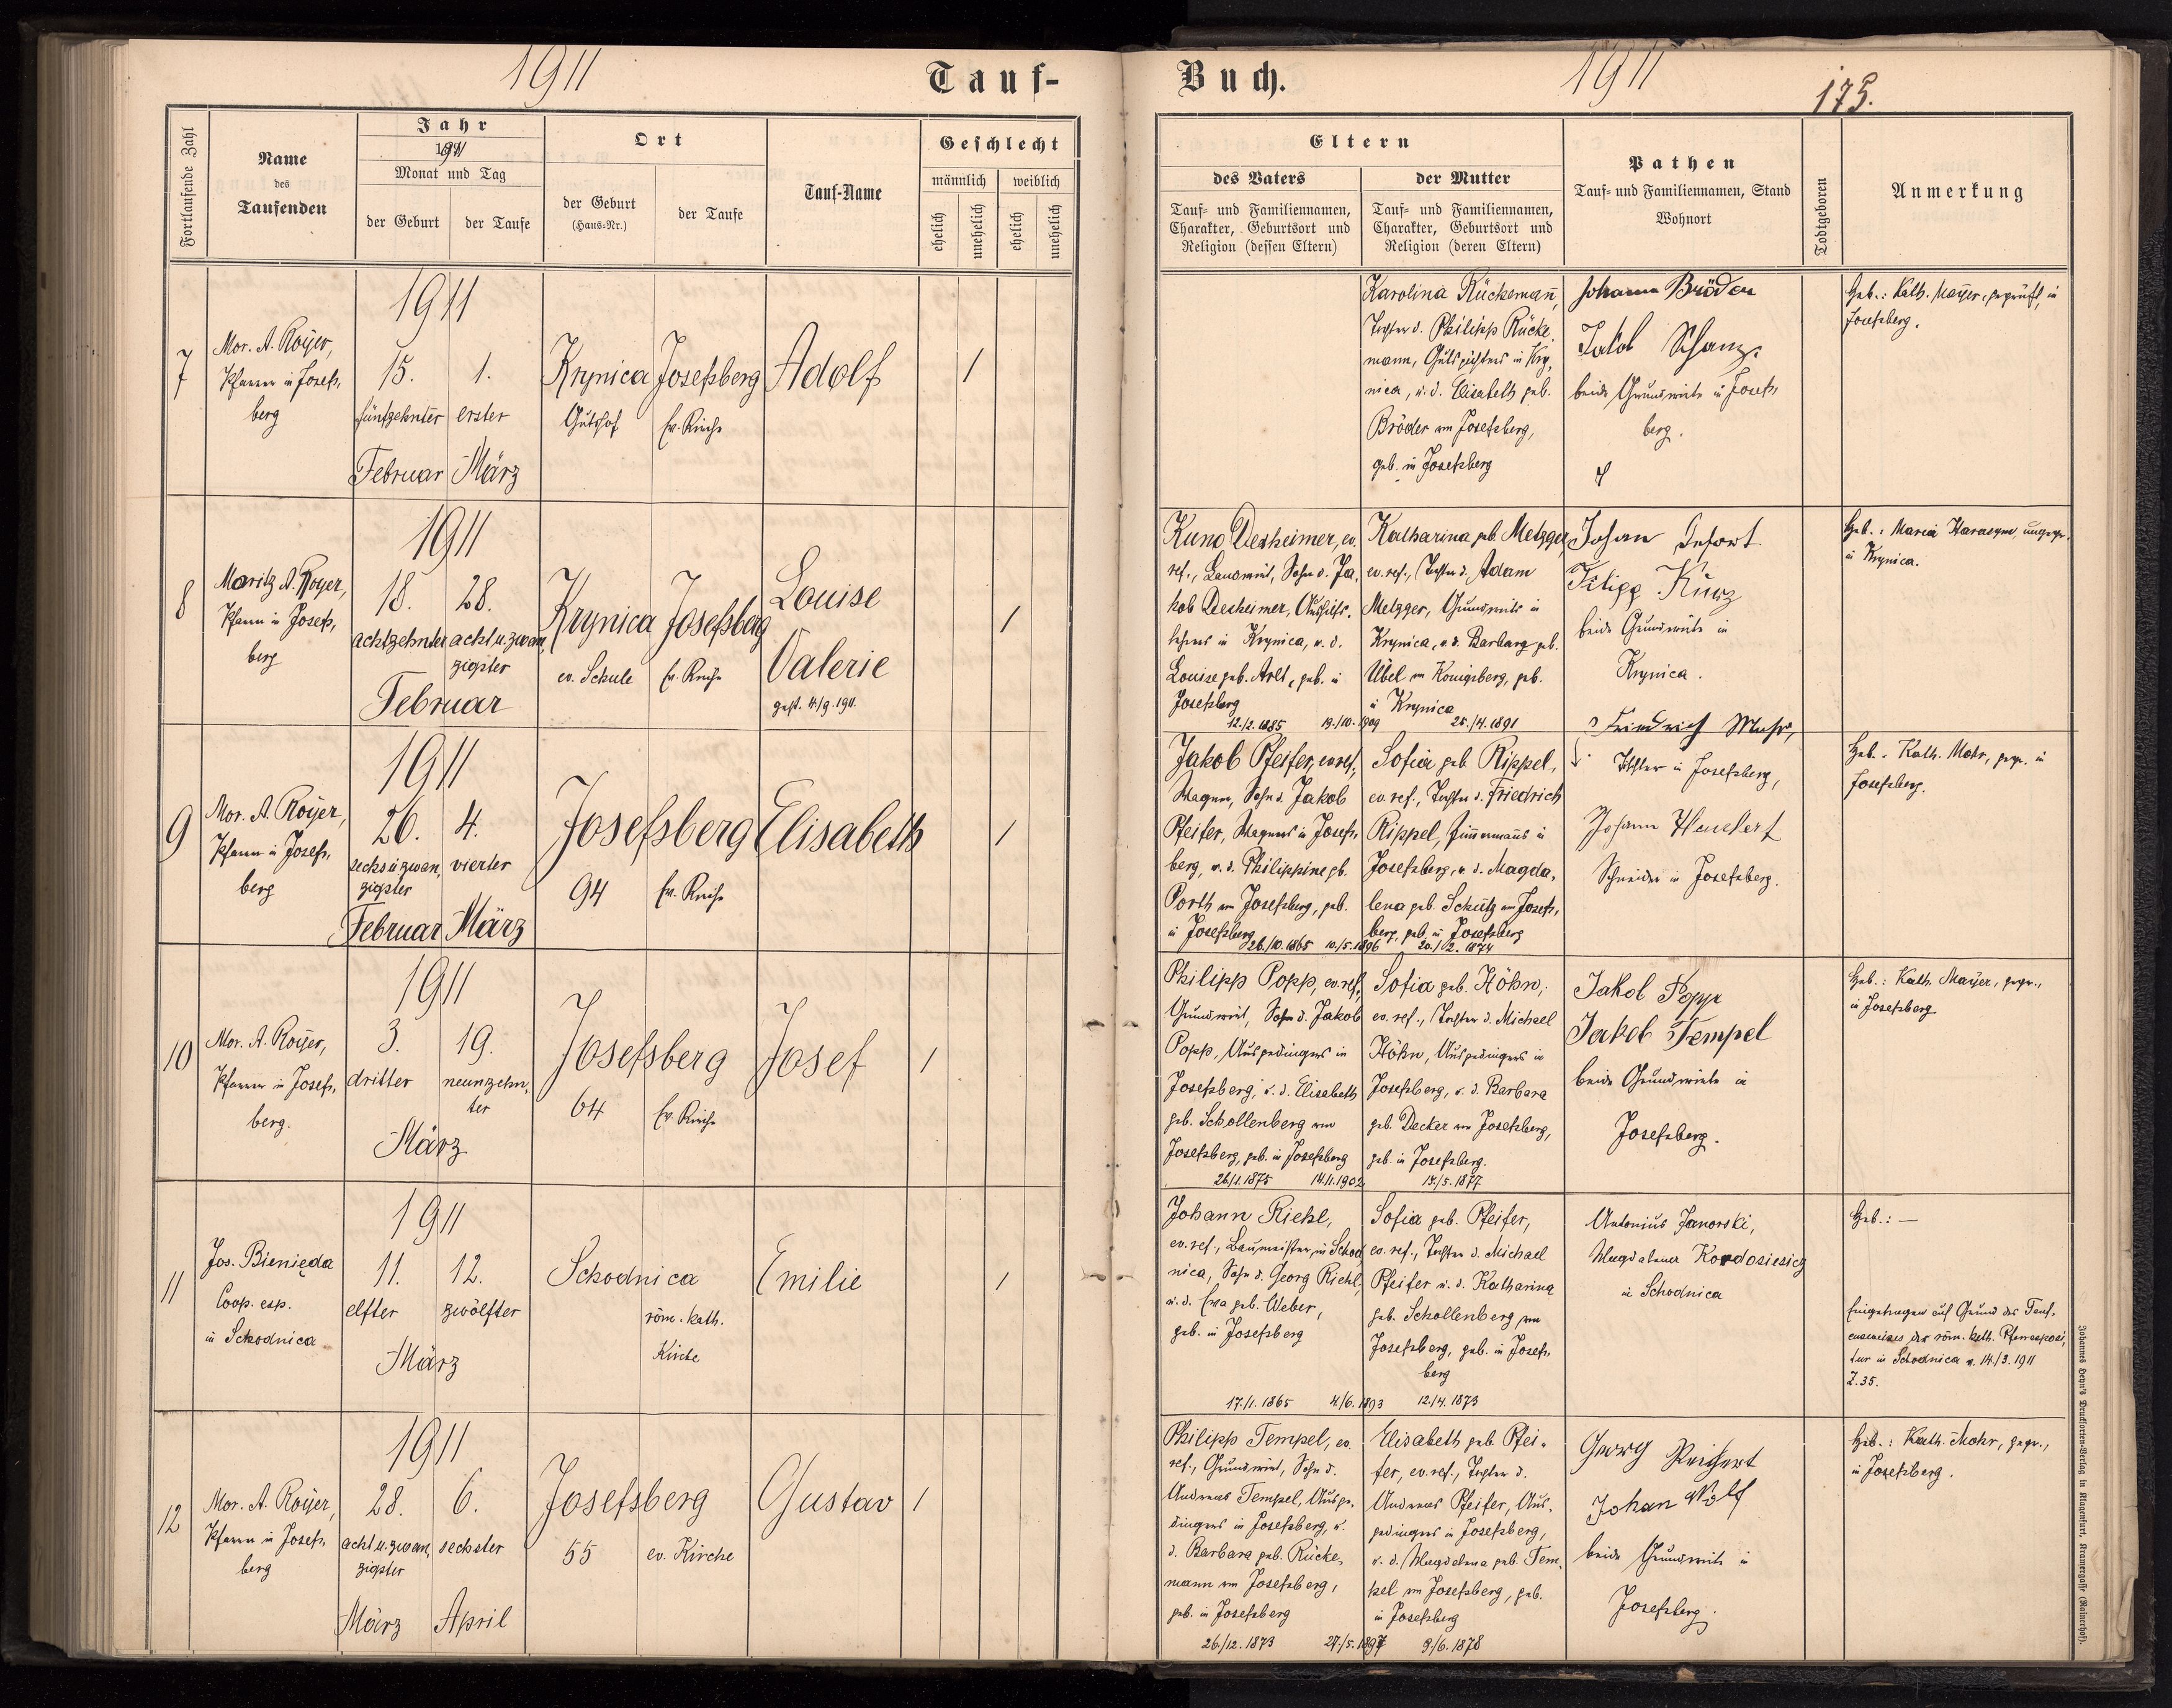 1911
Tauf-
Buch.
1911
175.
Fortlaufende Zahl
Name
des
Taufenden
Jahr
1911
Monat und Tag
der Geburt
der Taufe
Ort
der Geburt
(Haus-Nr.)
der Taufe
Tauf-Name
Geschlecht
männlich
weiblich
ehelich
unehelich
ehelich
unehelich
Eltern
des Vaters
Tauf- und Familiennamen,
Charakter, Geburtsort und
Religion (dessen Eltern)
der Mutter
Tauf- und Familiennamen,
Charakter, Geburtsort und
Religion (deren Eltern)
Pathen
Tauf- und Familiennamen, Stand
Wohnort
Todtgeboren
Anmerkung
7
Mor. A. Royer,
Pfarrer in Josefs,
berg
1911
15.
fünfzehnter
Februar
1.
erster
März
Krynica
Gutshof
Josefsberg
Ev. Kirche
Adolf
/
Karolina Rückemann,
Tochter d. Philipp Rücke,
mann, Gutspächters in Kry,
nica, u. d. Elisabeth geb.
Bröder von Josefsberg,
geb. in Josefsberg
Johann Bröder
Jakob Schanz
beide Grundwirte in Josefs,
berg.
Heb.: Kath. Mayer, geprüft, in
Josefsberg.
8
Moritz A. Royer,
Pfarrer in Josefs,
berg
1911
18.
achtzehnter
28.
acht u. zwan,
zigster
Februar
Krynica
ev. Schule
Josefsberg
Ev. Kirche
Louise
Valerie
gest. 4./9. 1911.
/
Kuno Desheimer, ev.
ref., Landwirt, Sohn d. Ja,
kob Desheimer, Aushilfs,
lehrers in Krynica, u. d.
Louise geb. Arlt, geb. in
Josefsberg
12./2. 1885
19./10. 1909
Katharina geb. Metzger
ev. ref., Tochter d. Adam
Metzger, Grundwirts in
Krynica, u. d. Barbara geb.
Übel von Königsberg, geb.
in Krynica
25./4. 1891
Johan
Filipp Kurz
beide Grundwirte in
Krynica.
Heb.: Maria
in Krynica.
9
Mor. A. Royer,
Pfarrer in Josefs,
berg
1911
26.
sechs u. zwan,
zigster
Februar
4.
vierter
März
Josefsberg
94
Ev. Kirche
Elisabeth
/
Jakob Pfeifer, ev. ref.,
Wagner, Sohn d. Jakob
Pfeifer, Wagners in Josefs,
berg, u. d. Philippine gb.
Porth von Josefsberg, geb.
in Josefsberg
26./10. 1865
10./5. 1896
Sofia geb. Rippel,
ev. ref., Tochter d. Friedrich
Rippel, Zimmermanns in
Josefsberg, u. d. Magda,
lena geb. Schütz von Josefs,
berg, geb. in Josefsberg
20./2. 1874
Friedrich Mohr,
in Josefsberg,
Johann
Schneider in Josefsberg.
Heb.: Kath. Mohr, gepr. in
Josefsberg.
10
Mor. A. Royer,
Pfarrer in Josefs,
berg.
1911
3.
dritter
19.
neunzehn,
ter
März
Josefsberg
64
Ev. Kirche
Josef
/
Philipp Popp, ev. ref.,
Grundwirt, Sohn d. Jakob
Popp, Ausgedingers in
Josefsberg, u. d. Elisabeth
geb. Schollenberg von
Josefsberg, geb. in Josefsberg
26/1. 1875
14./1. 1902
Sofia geb. Höhn,
ev. ref., Tochter d. Michael
Höhn, Ausgedingers in
Josefsberg, u. d. Barbara
geb. Decker von Josefsberg,
geb. in Josefsberg.
15./5. 1877
Jakob Popp
Jakob Tempel
beide Grundwirte in
Josefsberg.
Heb.: Kath. Mayer, gepr.,
in Josefsberg
11
Jos. Bienięda
Coop. exp.
in Schodnica
1911
11.
elfter
12.
zwölfter
März
Schodnica
röm. kath.
Kirche
Emilie
/
Johann Riehl,
ev. ref., Baumeister, in Schod,
nica, Sohn d. Georg Riehl,
u. d. Ewa geb. Weber,
geb. in Josefsberg
17./1. 1865
4./6. 1893
Sofia geb. Pfeifer,
ev. ref., Tochter d. Michael
Pfeifer u. d. Katharina
geb. Schollenberg von
Josefsberg, geb. in Josefs,
berg
12./4. 1873
Antonius Janorski,
Magdalena Kordosiesicz
in Schodnica
Heb.: —
Eingetragen auf Grund des Tauf,
ausweises der röm. kath. Pfarrexposi,
tur in Schodnica v. 14./3. 1911
Z. 35.
12
Mor. A. Royer,
Pfarrer in Josefs,
berg
1911
28.
acht u. zwan,
zigster
März
6.
sechster
April
Josefsberg
55
ev. Kirche
Gustav
/
Philipp Tempel, ev.
ref., Grundwirt, Sohn d.
Andreas Tempel, Ausge,
dingers in Josefsberg, u.
d. Barbara geb. Rücke,
mann von Josefsberg,
geb. in Josefsberg
26./12. 1873
27./5. 1897
Elisabeth geb. Pfei,
fer, ev. ref., Tochter d.
Andreas Pfeifer, Aus,
gedingers in Josefsberg,
u. d. Magdalena geb. Tem,
pel von Josefsberg, geb.
in Josefsberg
9./6. 1878
Georg Reichert
Johan Wolf
beide Grundwirte in
Josefsberg.
Heb.: Kath. Mohr, gepr.,
in Josefsberg.
Johannes Heyn's Drucksorten-Verlag in Klagenfurt, Kramergasse (Rainerhof).